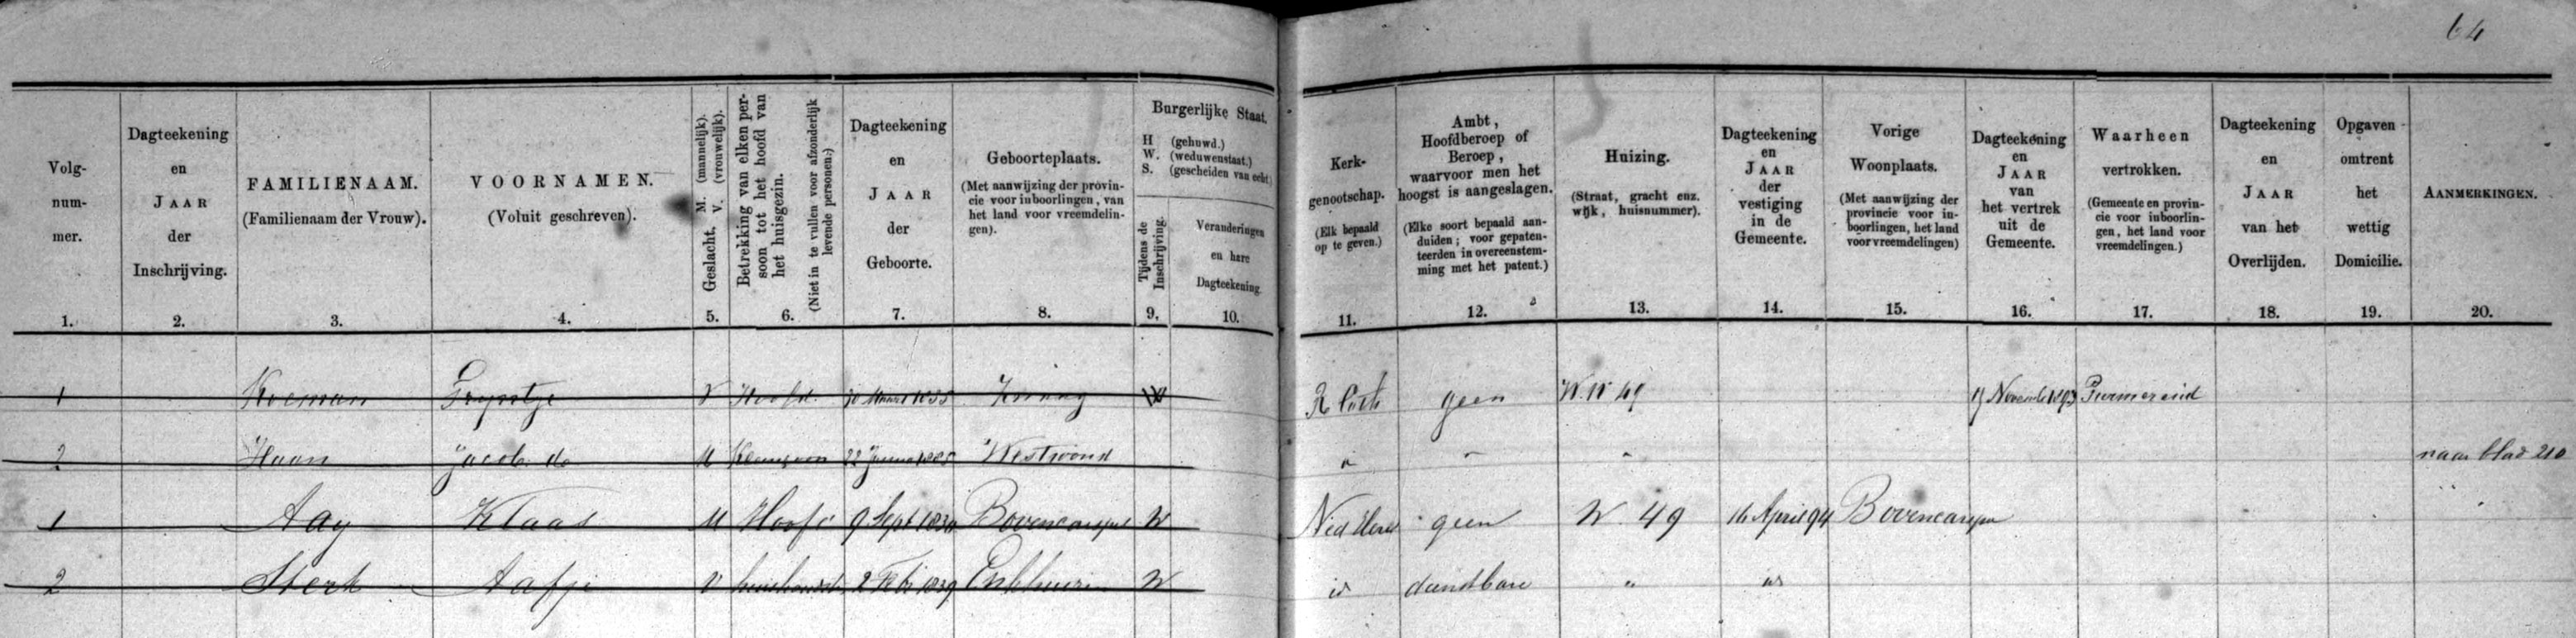 64
Volg-
num-
mer.
1.
Dagteekening
en
JAAR
der
Inschrijving.
2.
FAMILIENAAM.
(Familienaam der Vrouw).
3.
VOORNAMEN.
(Voluit geschreven).
4.
Geslacht, M. (mannelijk).
V. (vrouwelijk).
5.
Betrekking van elken per-
soon tot het hoofd van
het huisgezin.
(Niet in te vullen voor afzonderlijk
levende personen.)
6.
Dagteekening
en
JAAR
der
Geboorte.
7.
Geboorteplaats.
(Met aanwijzing der provin-
cie voor inboorlingen, van
het land voor vreemdelin-
gen).
8.
Burgerlijke Staat.
H (gehuwd.)
W. (weduwenstaat.)
S. (gescheiden van echt)
Tijdens de
Inschrijving.
9.
Veranderingen
en hare
Dagteekening.
10.
Kerk-
genootschap.
(Elk bepaald
op te geven.)
11.
Ambt,
Hoofdberoep of
Beroep,
waarvoor men het
hoogst is aangeslagen.
(Elke soort bepaald aan-
duiden; voor gepaten-
teerden in overeenstem-
ming met het patent.)
12.
Huizing.
(Straat, gracht enz.
wijk, huisnummer).
13.
Dagteekening
en
JAAR
der
vestiging
in de
Gemeente.
14.
Vorige
Woonplaats.
(Met aanwijzing der
provincie voor in-
boorlingen, het land
voor vreemdelingen)
15.
Dagteekening
en
JAAR
van
het vertrek
uit de
Gemeente.
16.
Waarheen
vertrokken.
(Gemeente en provin-
cie voor inboorlin-
gen, het land voor
vreemdelingen.)
17.
Dagteekening
en
JAAR
van het
Overlijden.
18.
Opgaven
omtrent
het
wettig
Domicilie.
19.
AANMERKINGEN.
20.
1 Koeman Grijntje V Hoofd 30 Maart 1835 W R Cath geen W. N 49 Novemb 1893 Purmerend
2 Haan Jacob de M 22 Westwoud " " " naar blad 210
1 Aay Klaas M Hoofd 9 Sept 1830 Bovencarspel W Ned Herv geen W. 49 16 April 94 Bovencarspe
2 Sterk Aafje V huishoudst 2 Feb 1839 Enkhuizen W id dienstbare " id